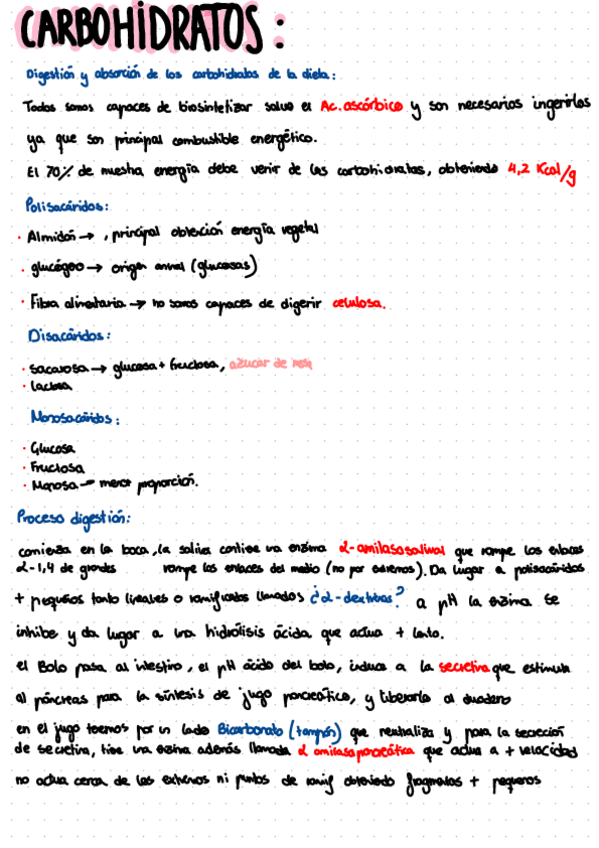 CARBOHIDRATOS:
Digestión y absorción de los carbohidratos de la dieta:
Todos somos capaces de biosintetizar salvo el Ac. ascórbico y son necesarios ingerirlos
ya que son principal combustible energético.
El 70% de nuestra energía debe venir de los carbohidratos, obteniendo 4,2 Kcal/g
Polisacáridos:
· Almidón → , principal obtención energía vegetal
· glucógeno → origen animal (glucosas)
· Fibra alimentaria → no somos capaces de digerir celulosa.
Disacáridos:
· sacarosa → glucosa + fructosa, azucar de mesa
· Lactosa
Monosacáridos:
· Glucosa
· Fructosa
· Manosa → menor proporción.
Proceso digestión:
comienza en la boca, la saliva contiene una enzima α-amilasa salival que rompe los enlaces
α-1,4 de grandes rompe los enlaces del medio (no por extremos). Da lugar a polisacáridos
+ pequeños tanto lineales o ramificados llamados ¿α-dextrinas? a pH la enzima se
inhibe y da lugar a una hidrólisis ácida que actua + lento.
el Bolo pasa al intestino, el pH ácido del bolo, induce a la secretina que estimula
al páncreas para la síntesis de jugo pancreático, y liberarlo al duodeno
en el jugo tenemos por un lado Bicarbonato (tampón) que neutraliza y para la secreción
de secretina, tiene una enzima además llamada α amilasa pancreática que actua a + velocidad
no actua cerca de los extremos ni puntos de ramif obteniendo fragmentos + pequeños